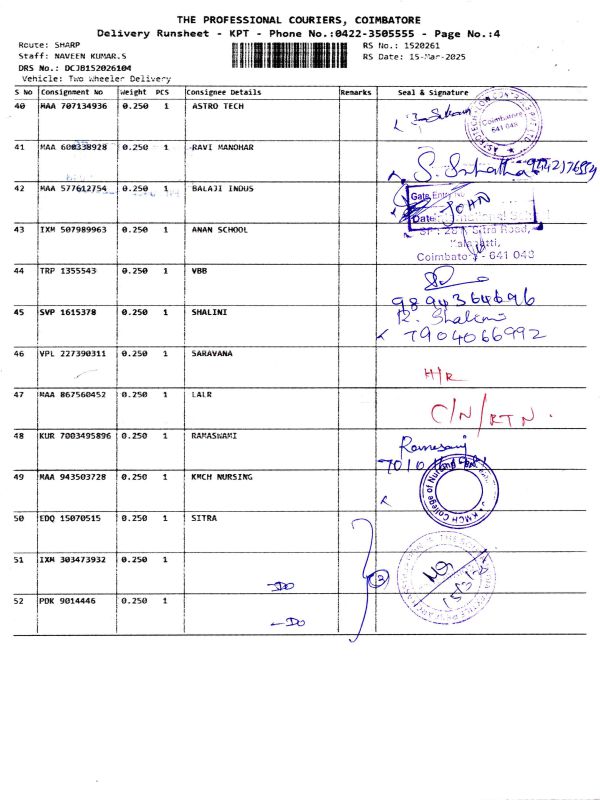 THE PROFESSIONAL COURIERS, COIMBATORE
Delivery Runsheet - KPT - Phone No.:0422-3505555 - Page No.:4
Route: SHARP RS No.: 1520261
Staff: NAVEEN KUMAR.S RS Date: 15-Mar-2025
DRS No.: DCJB152026104
Vehicle: Two Wheeler Delivery
S No Consignment No Weight PCS Consignee Details Remarks Seal & Signature
40 MAA 707134936 0.250 1 ASTRO TECH
Coimbatore
641 048
41 MAA 600338928 0.250 1 RAVI MANOHAR
42 MAA 577612754 0.250 1 BALAJI INDUS
Gate Entry No
JOHN
Date
43 IXM 507989963 0.250 1 ANAN SCHOOL
Sitra Road,
Kalapatti,
Coimbatore - 641 048
44 TRP 1355543 0.250 1 VBB
9894364696
45 SVP 1615378 0.250 1 SHALINI
R. Shalini
7904066992
46 VPL 227390311 0.250 1 SARAVANA
H/R
47 MAA 867560452 0.250 1 LALR
C/N/RTN.
48 KUR 7003495896 0.250 1 RAMASWAMI
7010
49 MAA 943503728 0.250 1 KMCH NURSING
KMCH College of Nursing
50 EDQ 15070515 0.250 1 SITRA
51 IXM 303473932 0.250 1
-DO
3
52 PDK 9014446 0.250 1
-DO